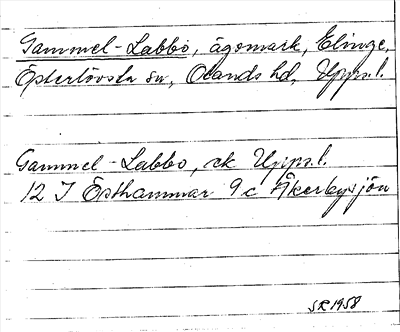 Gammel-Labbo, ägomark, Elinge,
Österlövsta sn, Olands hd, Upps.l.
Gammel-Labbo, ek Upps.l.
12 I Östhammar 9c Åkerbysjön
SR 1958